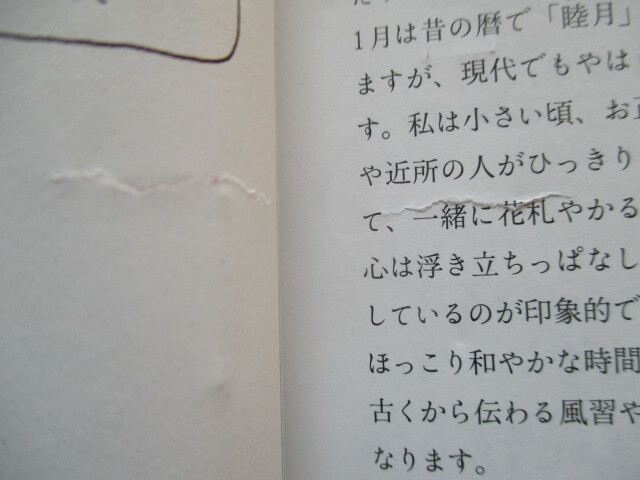 1月は昔の暦で「睦月」
ますが、現代でもやは
す。私は小さい頃、お正
や近所の人がひっきり
て、一緒に花札やかる
心は浮き立ちっぱなし
しているのが印象的で
ほっこり和やかな時間
古くから伝わる風習や
なります。